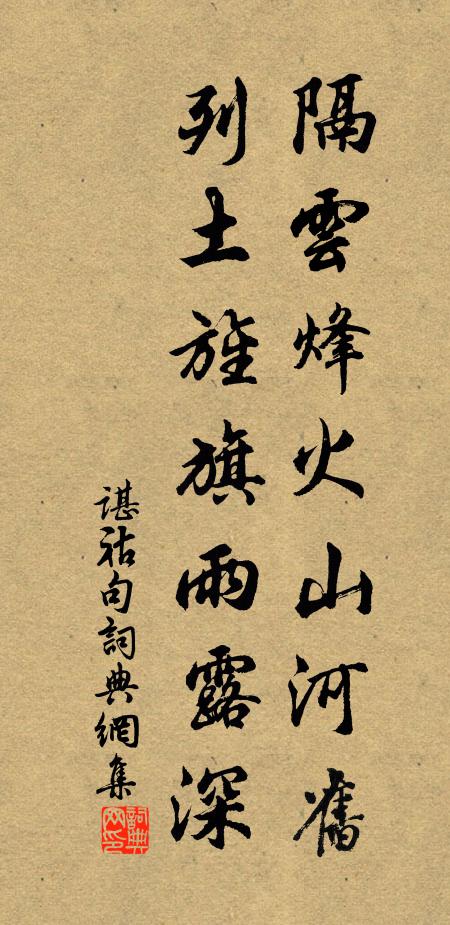 隔雲烽火山河舊
列土旌旗雨露深
諶祜句詞典網集
詞典網印